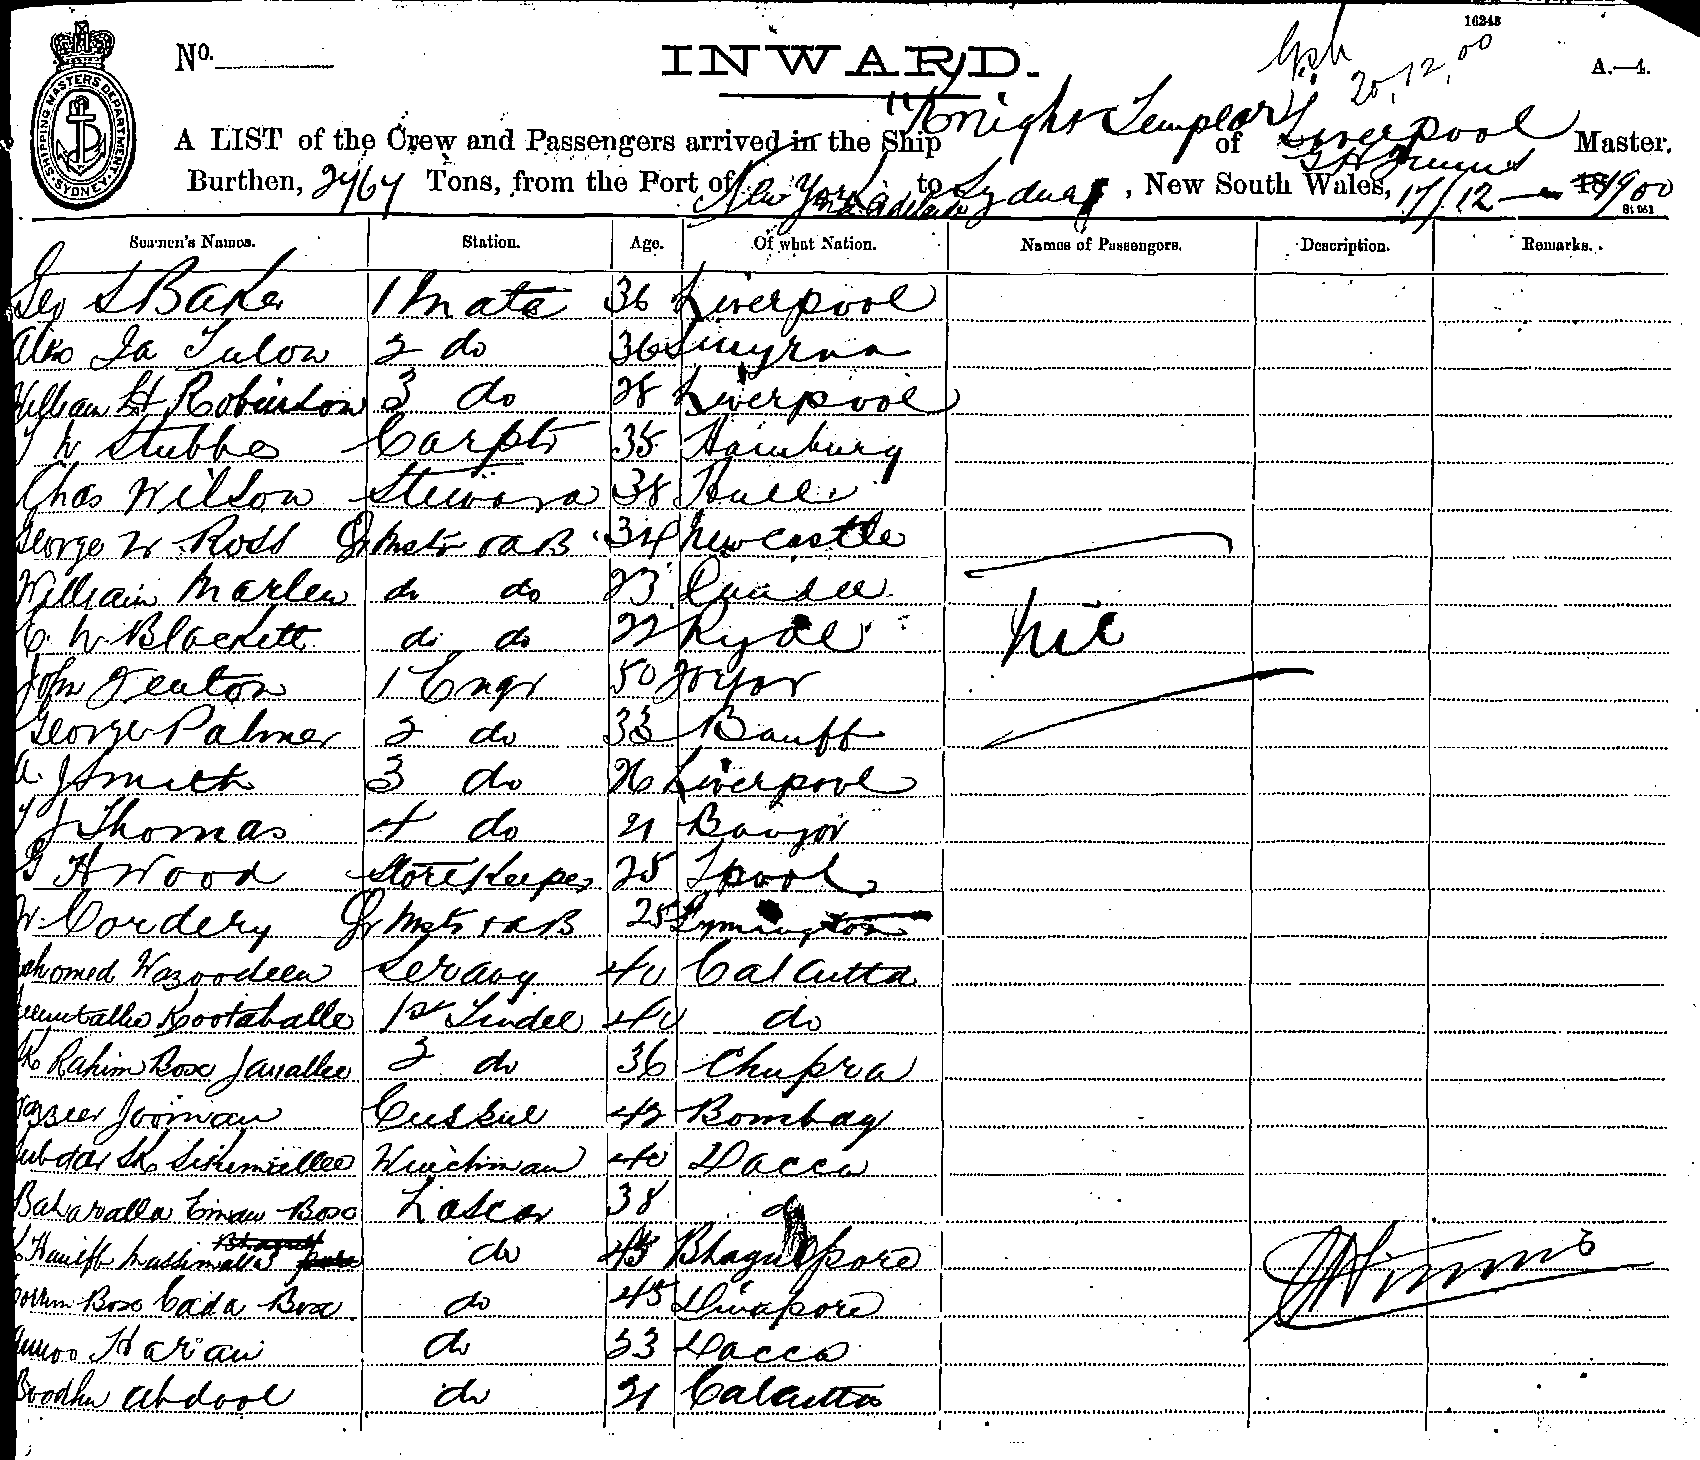 16243
No. 20.12.00 A.—4.
INWARD.
SHIPPING MASTERS DEPARTMENT. SYDNEY.
A LIST of the Crew and Passengers arrived in the Ship "Knight Templar" of Liverpool Master.
Burthen, 2467 Tons, from the Port of New York via Adelaide to Sydney, New South Wales, 17/12 — 1900
Seamen's Names. Station. Age. Of what Nation. Names of Passengers. Description. Remarks.
Geo S Baker 1 Mate 36 Liverpool
2 do 36 Smyrna
William H Robinson 3 do 28 Liverpool
W Stubbs Carptr 35 Hamburg
Chas Wilson Steward 38 Hull
George W Ross Qr Mstr & AB 34 Newcastle
William Marlew do do 23 Dundee
C. W. Blackett do do 22 Ryde nil
John Fenton 1 Engr 50
George Palmer 2 do 33 Banff
A J Smith 3 do 26 Liverpool
J Thomas 4 do 21 Bangor
G H Wood Storekeeper 25 Lpool
W. Cordery Qr Mstr & AB 25 Lymington
Wazoodeen Serang 40 Calcutta
Kootaballe 1st Tindel 40 do
Rahim Box Janallee 2 do 36 Chupra
Jooman 42 Bombay
Winchman 40 Dacca
Baharalla Eman Box Lascar 38 do
do 45 Bhagulpore
Box Cada Box do 45 Dinapore
Harian do 33 Dacca
Boodhu Abdool do 21 Calcutta